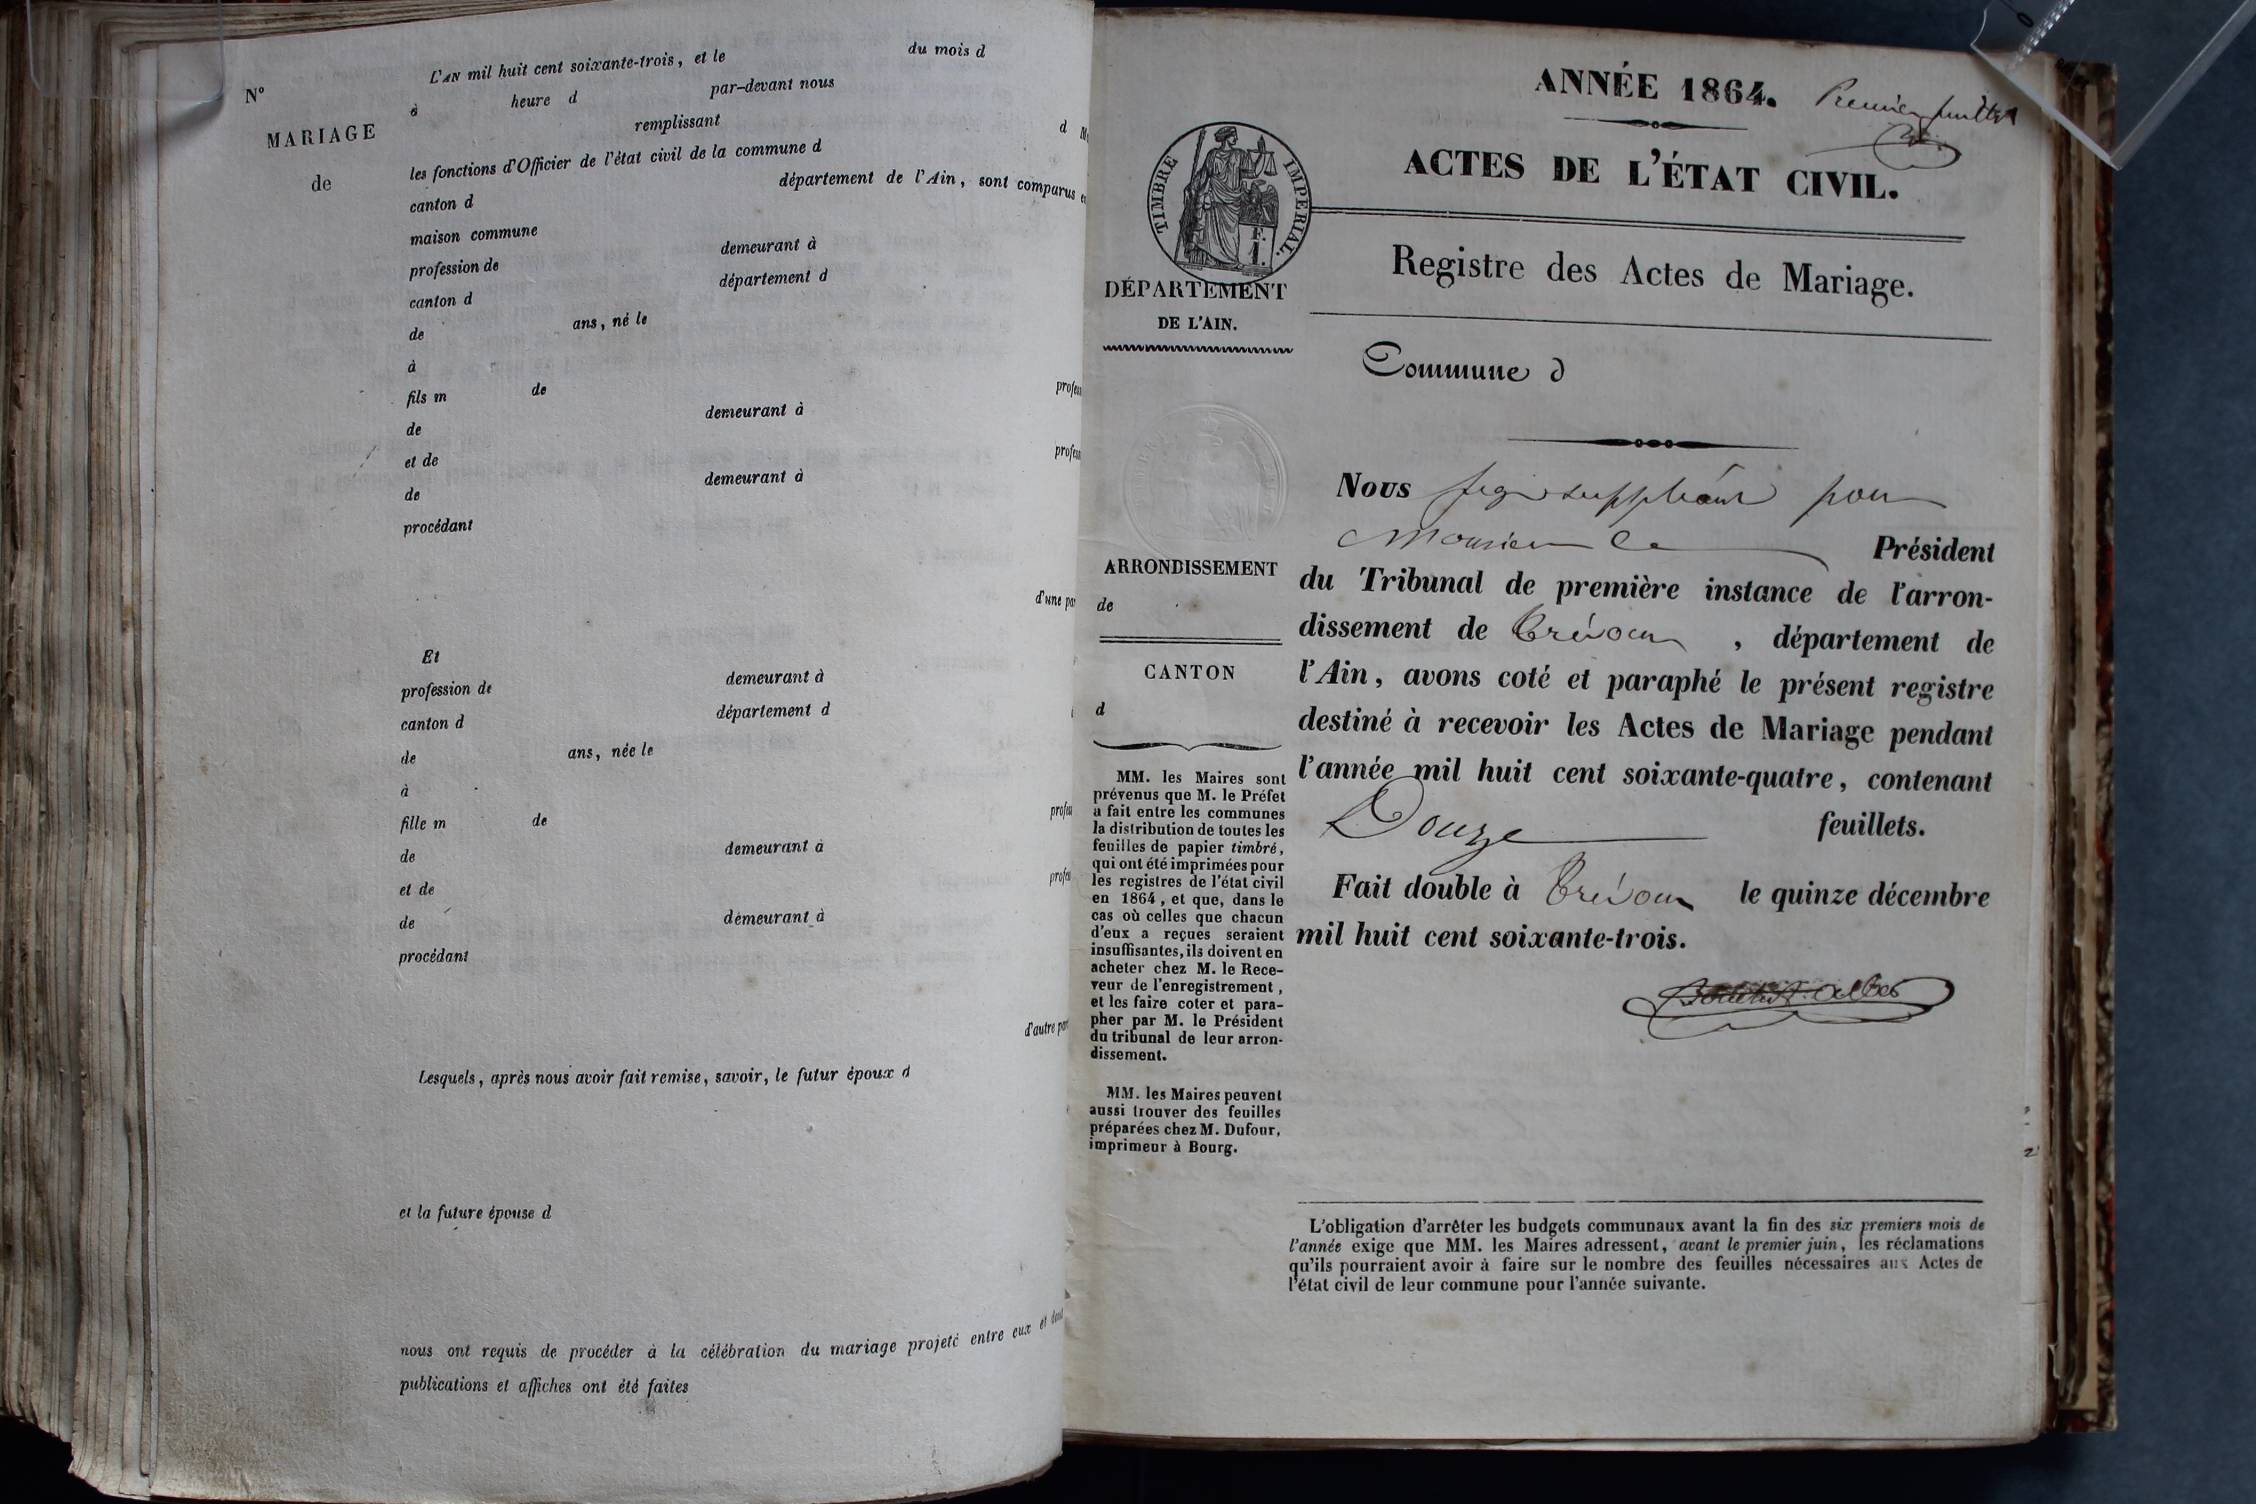 N°
MARIAGE
de
L'AN mil huit cent soixante-trois, et le du mois d
à heure d par-devant nous
remplissant d
les fonctions d'Officier de l'état civil de la commune d
canton d département de l'Ain, sont comparus
maison commune
profession de demeurant à
canton d département d
de ans, né le
à
fils m de
de demeurant à
et de
de demeurant à
procédant
d'une par
Et
profession de demeurant à
canton d département d
de ans, née le
à
fille m de
de demeurant à
et de
de demeurant à
procédant
d'autre par
Lesquels, après nous avoir fait remise, savoir, le futur époux d
et la future épouse d
nous ont requis de procéder à la célébration du mariage projeté entre eux et dont
publications et affiches ont été faites
ANNÉE 1864. Premier feuillet
ACTES DE L'ÉTAT CIVIL.
TIMBRE IMPERIAL.
F.
1.
DÉPARTEMENT
DE L'AIN.
Registre des Actes de Mariage.
Commune d
ARRONDISSEMENT
de
CANTON
d
MM. les Maires sont
prévenus que M. le Préfet
a fait entre les communes
la distribution de toutes les
feuilles de papier timbré,
qui ont été imprimées pour
les registres de l'état civil
en 1864, et que, dans le
cas où celles que chacun
d'eux a reçues seraient
insuffisantes, ils doivent en
acheter chez M. le Rece-
veur de l'enregistrement,
et les faire coter et para-
pher par M. le Président
du tribunal de leur arron-
dissement.
MM. les Maires peuvent
aussi trouver des feuilles
préparées chez M. Dufour,
imprimeur à Bourg.
Nous juge suppléant pour
Monsieur le Président
du Tribunal de première instance de l'arron-
dissement de Trévoux, département de
l'Ain, avons coté et paraphé le présent registre
destiné à recevoir les Actes de Mariage pendant
l'année mil huit cent soixante-quatre, contenant
Douze feuillets.
Fait double à Trévoux le quinze décembre
mil huit cent soixante-trois.
L'obligation d'arrêter les budgets communaux avant la fin des six premiers mois de
l'année exige que MM. les Maires adressent, avant le premier juin, les réclamations
qu'ils pourraient avoir à faire sur le nombre des feuilles nécessaires aux Actes de
l'état civil de leur commune pour l'année suivante.